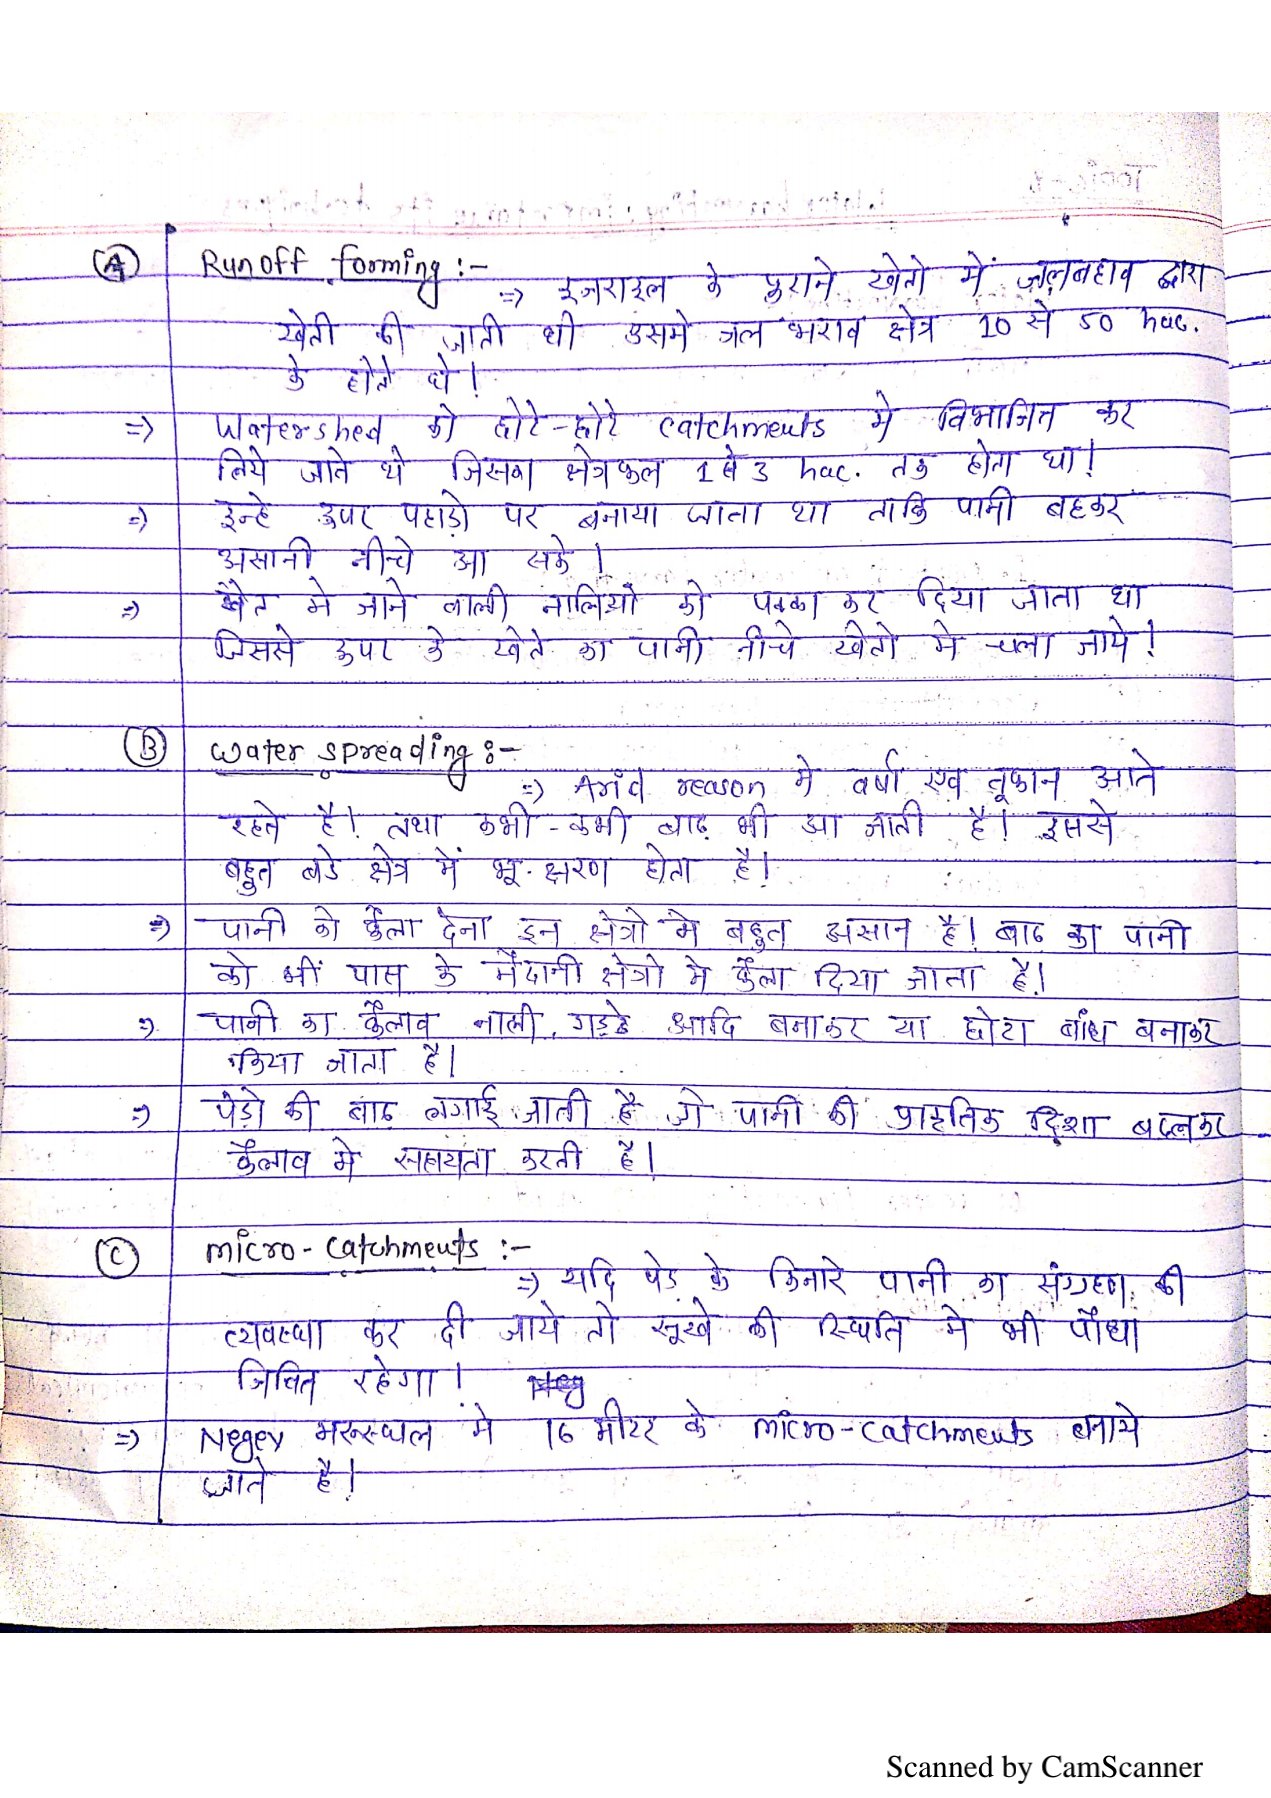 (A) Runoff forming :-
=> इजराइल के पुराने खेतो में जलबहाव द्वारा
खेती की जाती थी उसमे जल भराव क्षेत्र 10 से 50 hac.
के होते थे!
=> Watershed को छोटे-छोटे catchments मे विभाजित कर
लिये जाते थे जिसका क्षेत्रफल 1 से 3 hac. तक होता था!
=> इन्हे ऊपर पहाड़ो पर बनाया जाता था ताकि पानी बहकर
असानी नीचे आ सके।
=> खेत मे जाने वाली नालियों को पक्का कर दिया जाता था
जिससे ऊपर के खेते का पानी नीचे खेतो मे चला जाये!
(B) Water spreading :-
=> Arid reason मे वर्षा एव तूफान आते
रहते है। तथा कभी-कभी बाढ़ भी आ जाती है। इससे
बहुत बडे क्षेत्र में भू-क्षरण होता है।
=> पानी को फैला देना इन क्षेत्रो मे बहुत असान है। बाढ का पानी
को भी पास के मैदानी क्षेत्रो मे फैला दिया जाता है।
=> पानी का फैलाव नाली, गड्डे आदि बनाकर या छोटा बाँध बनाकर
किया जाता है।
=> पेडो की बाढ लगाई जाती है जो पानी की प्राकृतिक दिशा बदलकर
फैलाव मे सहायता करती है।
(C) micro-catchments :-
=> यदि पेड के किनारे पानी का संग्रहण की
व्यवस्था कर दी जाये तो सूखे की स्थिति मे भी पौधा
जिवित रहेगा! Neg
=> Negev मरुस्थल मे 16 मीटर के micro-catchments बनाये
जाते है!
Scanned by CamScanner